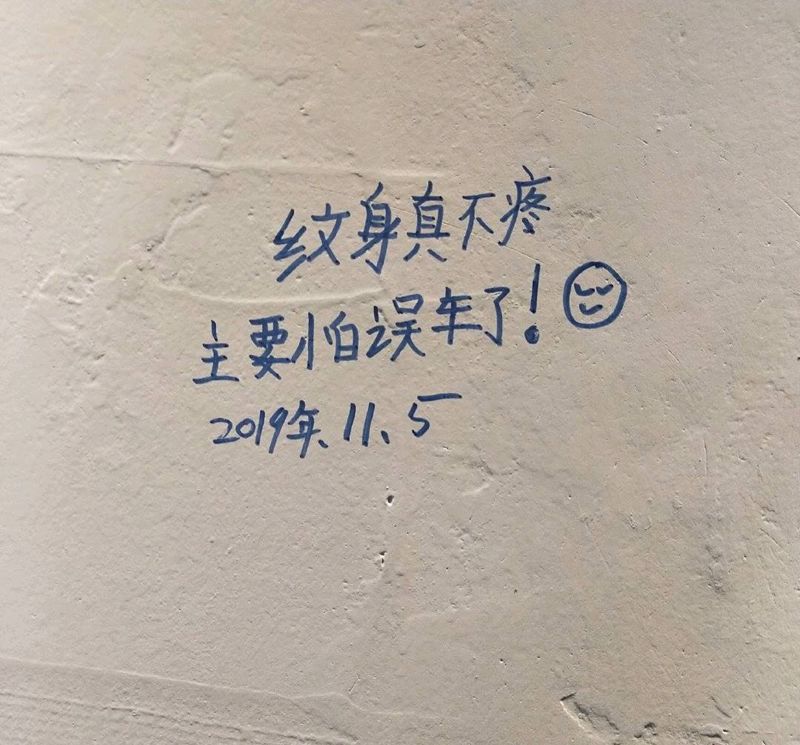 纹身真不疼
主要怕误车了!
2019年、11、5